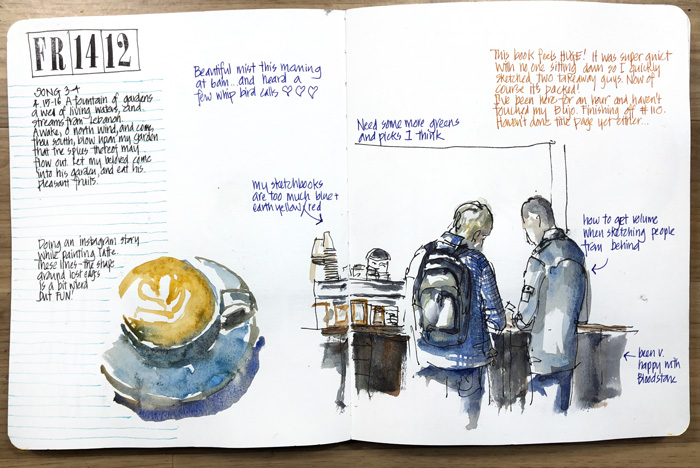 FR 14 12
SONG 3-4
4.15-16 A fountain of gardens
a well of living waters, and
streams from Lebanon.
Awake, O north wind, and come,
thou south, blow upon my garden
that the spices thereof may
flow out. Let my beloved come
into his garden, and eat his
pleasant fruits.
Doing an instagram story
while painting latte
these lines - the shape
around lost edges
is a bit weird
but FUN!
Beautiful mist this morning
at 6am... and heard a
few whip bird calls ♡♡♡
my sketchbooks
are too much blue +
earth yellow/red
Need some more greens
and pinks I think
This book feels HUGE! It was super quiet
with no one sitting down so I quickly
sketched two takeaway guys. Now of
course it's packed!
I've been here for an hour and haven't
touched my BuJo. Finishing off #110.
Haven't done title page yet either...
how to get volume
when sketching people
from behind
been v.
happy with
Bloodstone